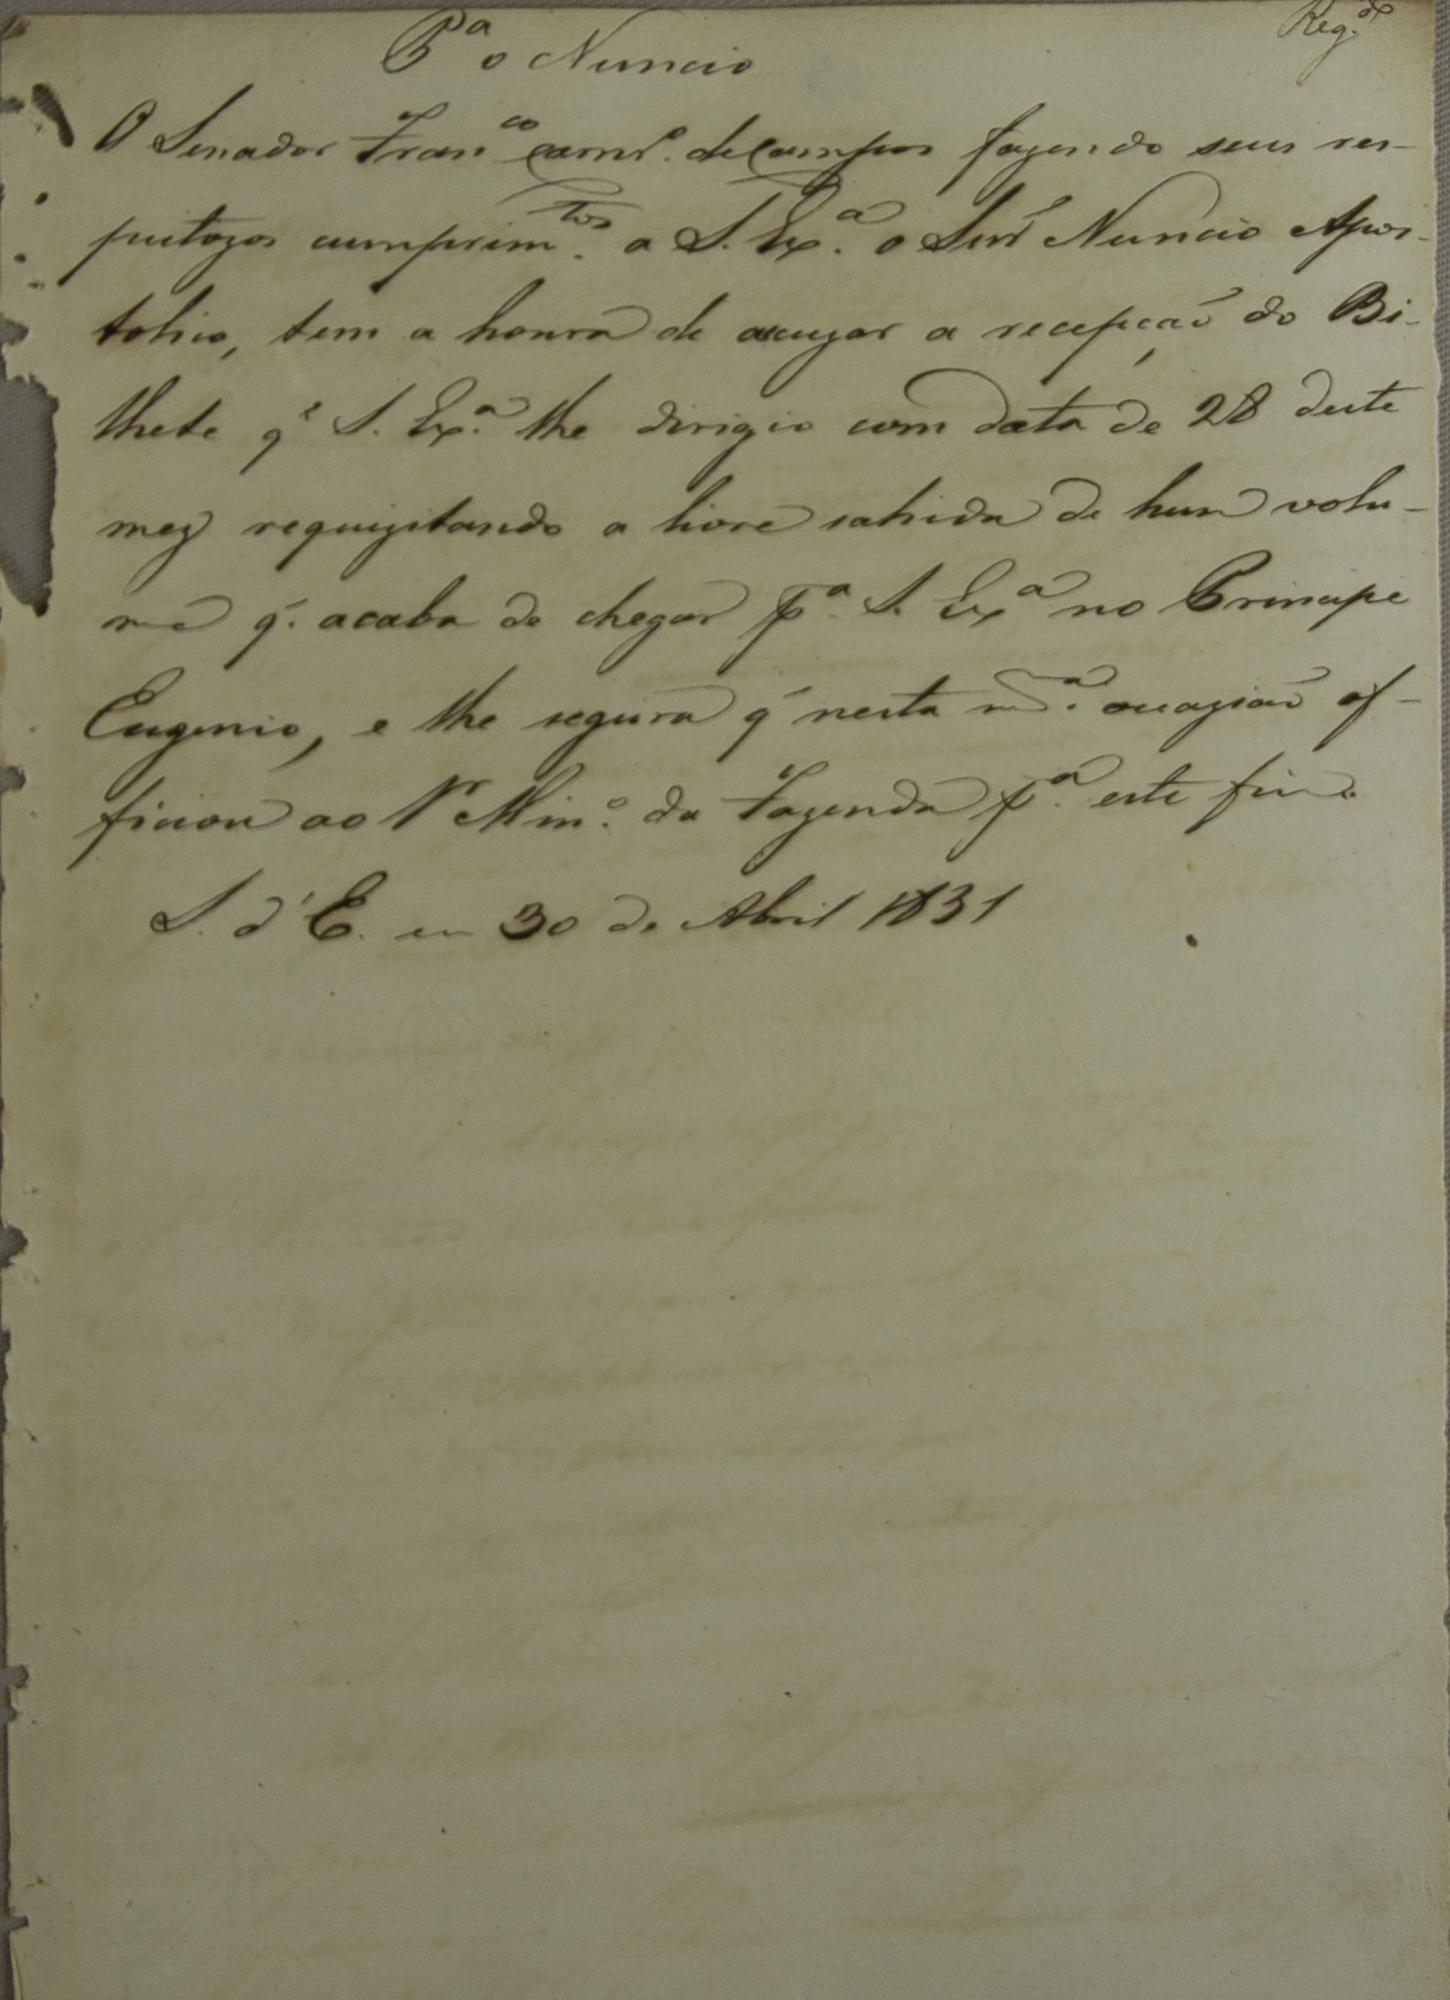 Reg.do
Pª o Nuncio
O Senador Franco Carnr.º de Campos fazendo seus res-
peitozos cumprim.tos a S. Ex.ª o Snr Nuncio Apos-
tolico, tem a honra de accuzar a recepção do Bi-
lhete q̃ S. Ex.ª lhe dirigio com data de 28 deste
mez requizitando a livre sahida de hum volu-
me q̃. acaba de chegar pª. S. Exª no Principe
Eugenio, e lhe segura q̃ nesta m.ª occazião of-
ficiou ao Sr Min.º da Fazenda p.ª este fim.
S. d'E. em 30 de Abril 1831